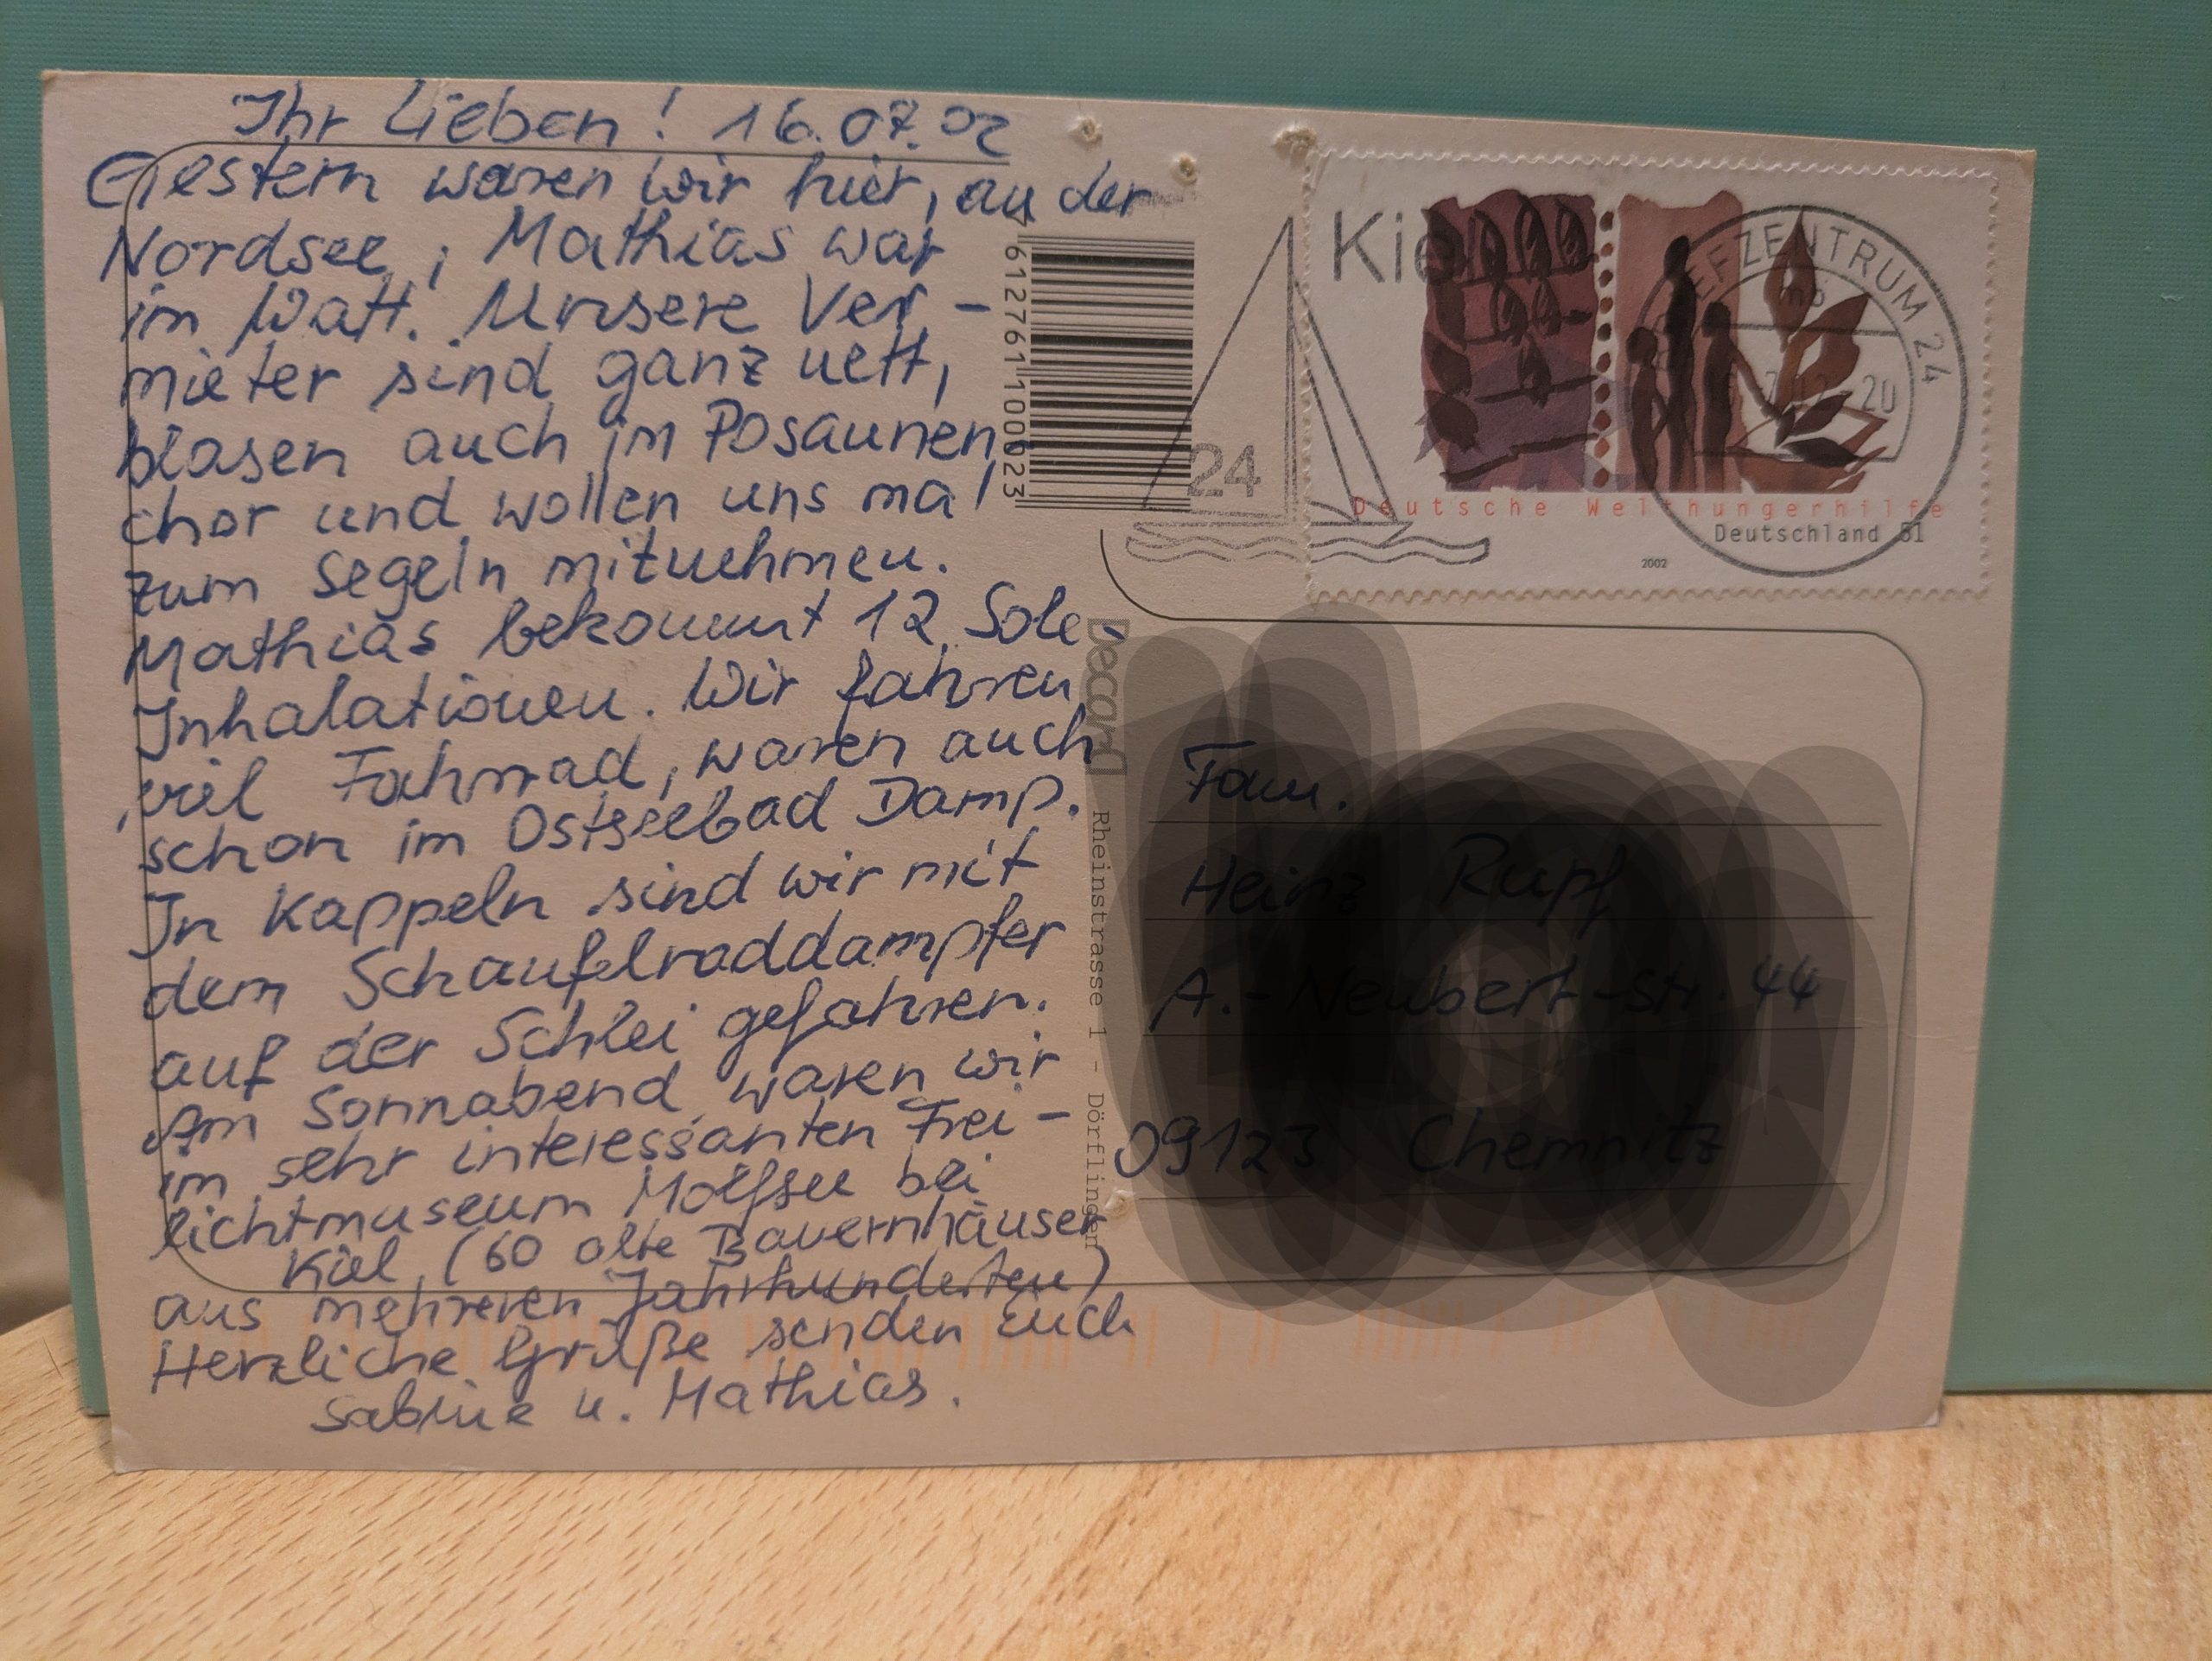 Ihr Lieben! 16.07.02
Gestern waren wir hier, an der
Nordsee, Mathias war
im Watt. Unsere Ver-
mieter sind ganz nett,
blasen auch im Posaunen
chor und wollen uns mal
zum Segeln mitnehmen.
Mathias bekommt 12 Sole-
Inhalationen. Wir fahren
viel Fahrrad, waren auch
schon im Ostseebad Damp.
In Kappeln sind wir mit
dem Schaufelraddampfer
auf der Schlei gefahren.
Am Sonnabend waren wir
im sehr interessanten Frei-
lichtmuseum Molfsee bei
Kiel, (60 alte Bauernhäuser
aus mehreren Jahrhunderten)
Herzliche Grüße senden Euch
Sabine u. Mathias.
7612761100023
Deccard Rheinstrasse 1 - Dörflingen
Kiel
24
BRIEFZENTRUM 24
mb
Deutsche Welthungerhilfe
Deutschland 51
2002